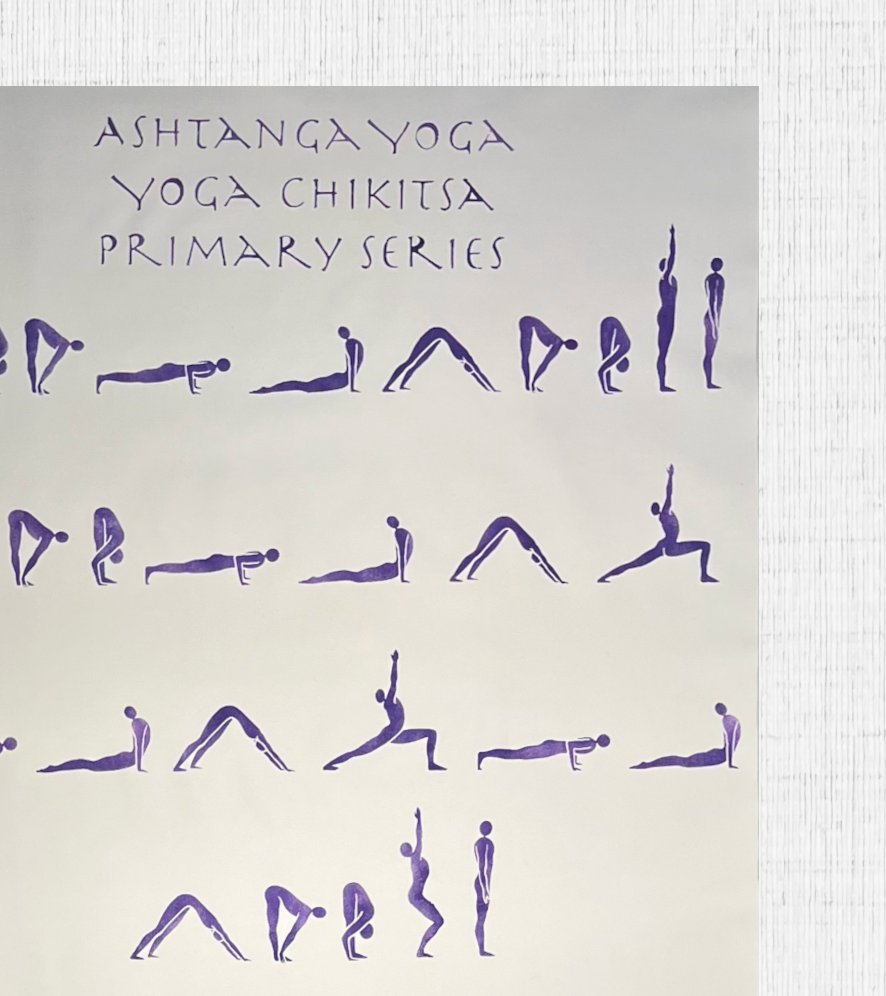 ASHTANGA YOGA
YOGA CHIKITSA
PRIMARY SERIES